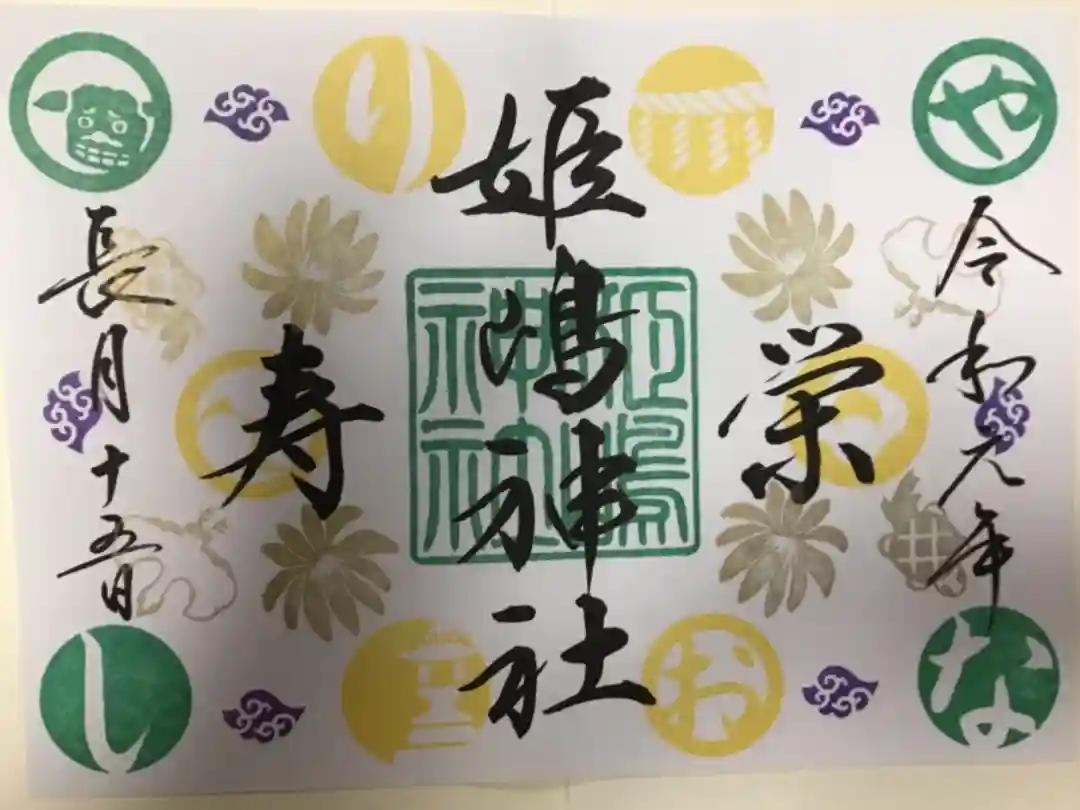 や
り
な
お
し
令和元年
栄
姫嶋神社
姫嶋
神社
寿
長月十五日